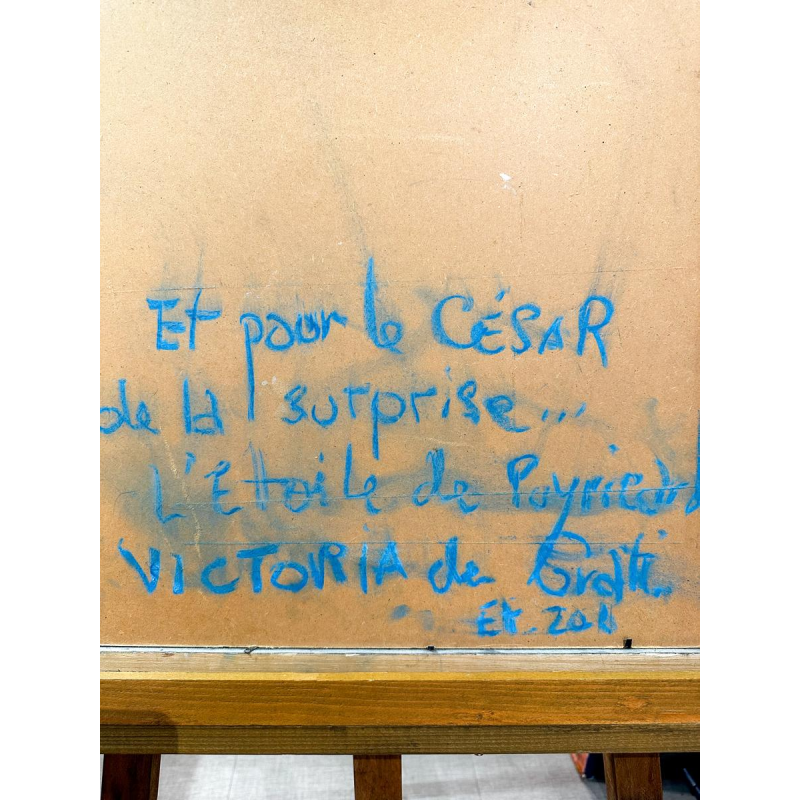 Et pour le CÉSAR
de la surprise...
L'Etoile de
VICTORIA de
Et.